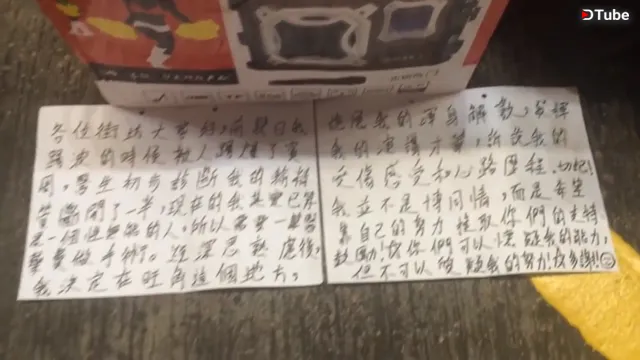 DTube
各位街坊大爺們,前幾日我
踢波的時候被人踢爆了睪
周,醫生初步診斷我的輸精
管斷開了一半,現在的我其實已算
是一個性無能的人,所以需要一筆醫
藥費做手術。經深思熟慮後,
我決定在旺角這個地方,
施展我的渾身解數,發揮
我的演講才華,訴說我的
受傷感受和心路歷程。切記!
我並不是博同情,而是希望
靠自己的努力 獲取你們的支持
鼓勵!你們可以懷疑我的能力,
但不可以質疑我的努力!好多謝!